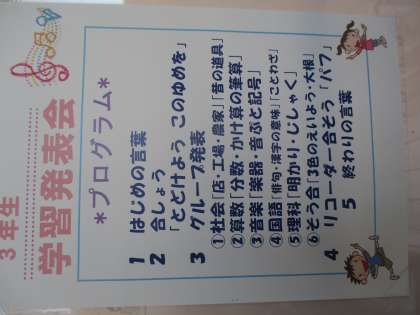 3年生
学習発表会
*プログラム*
1 はじめの言葉
2 合しょう
「とどけよう このゆめを」
3 グループ発表
①社会「店・工場・農家」「昔の道具」
②算数「分数・かけ算の筆算」
③音楽「楽器・音ぷと記号」
④国語「俳句・漢字の意味」「ことわざ」
⑤理科「明かり・じしゃく」
⑥そう合「3色のえいよう・大根」
4 リコーダー合そう「パフ」
5 終わりの言葉